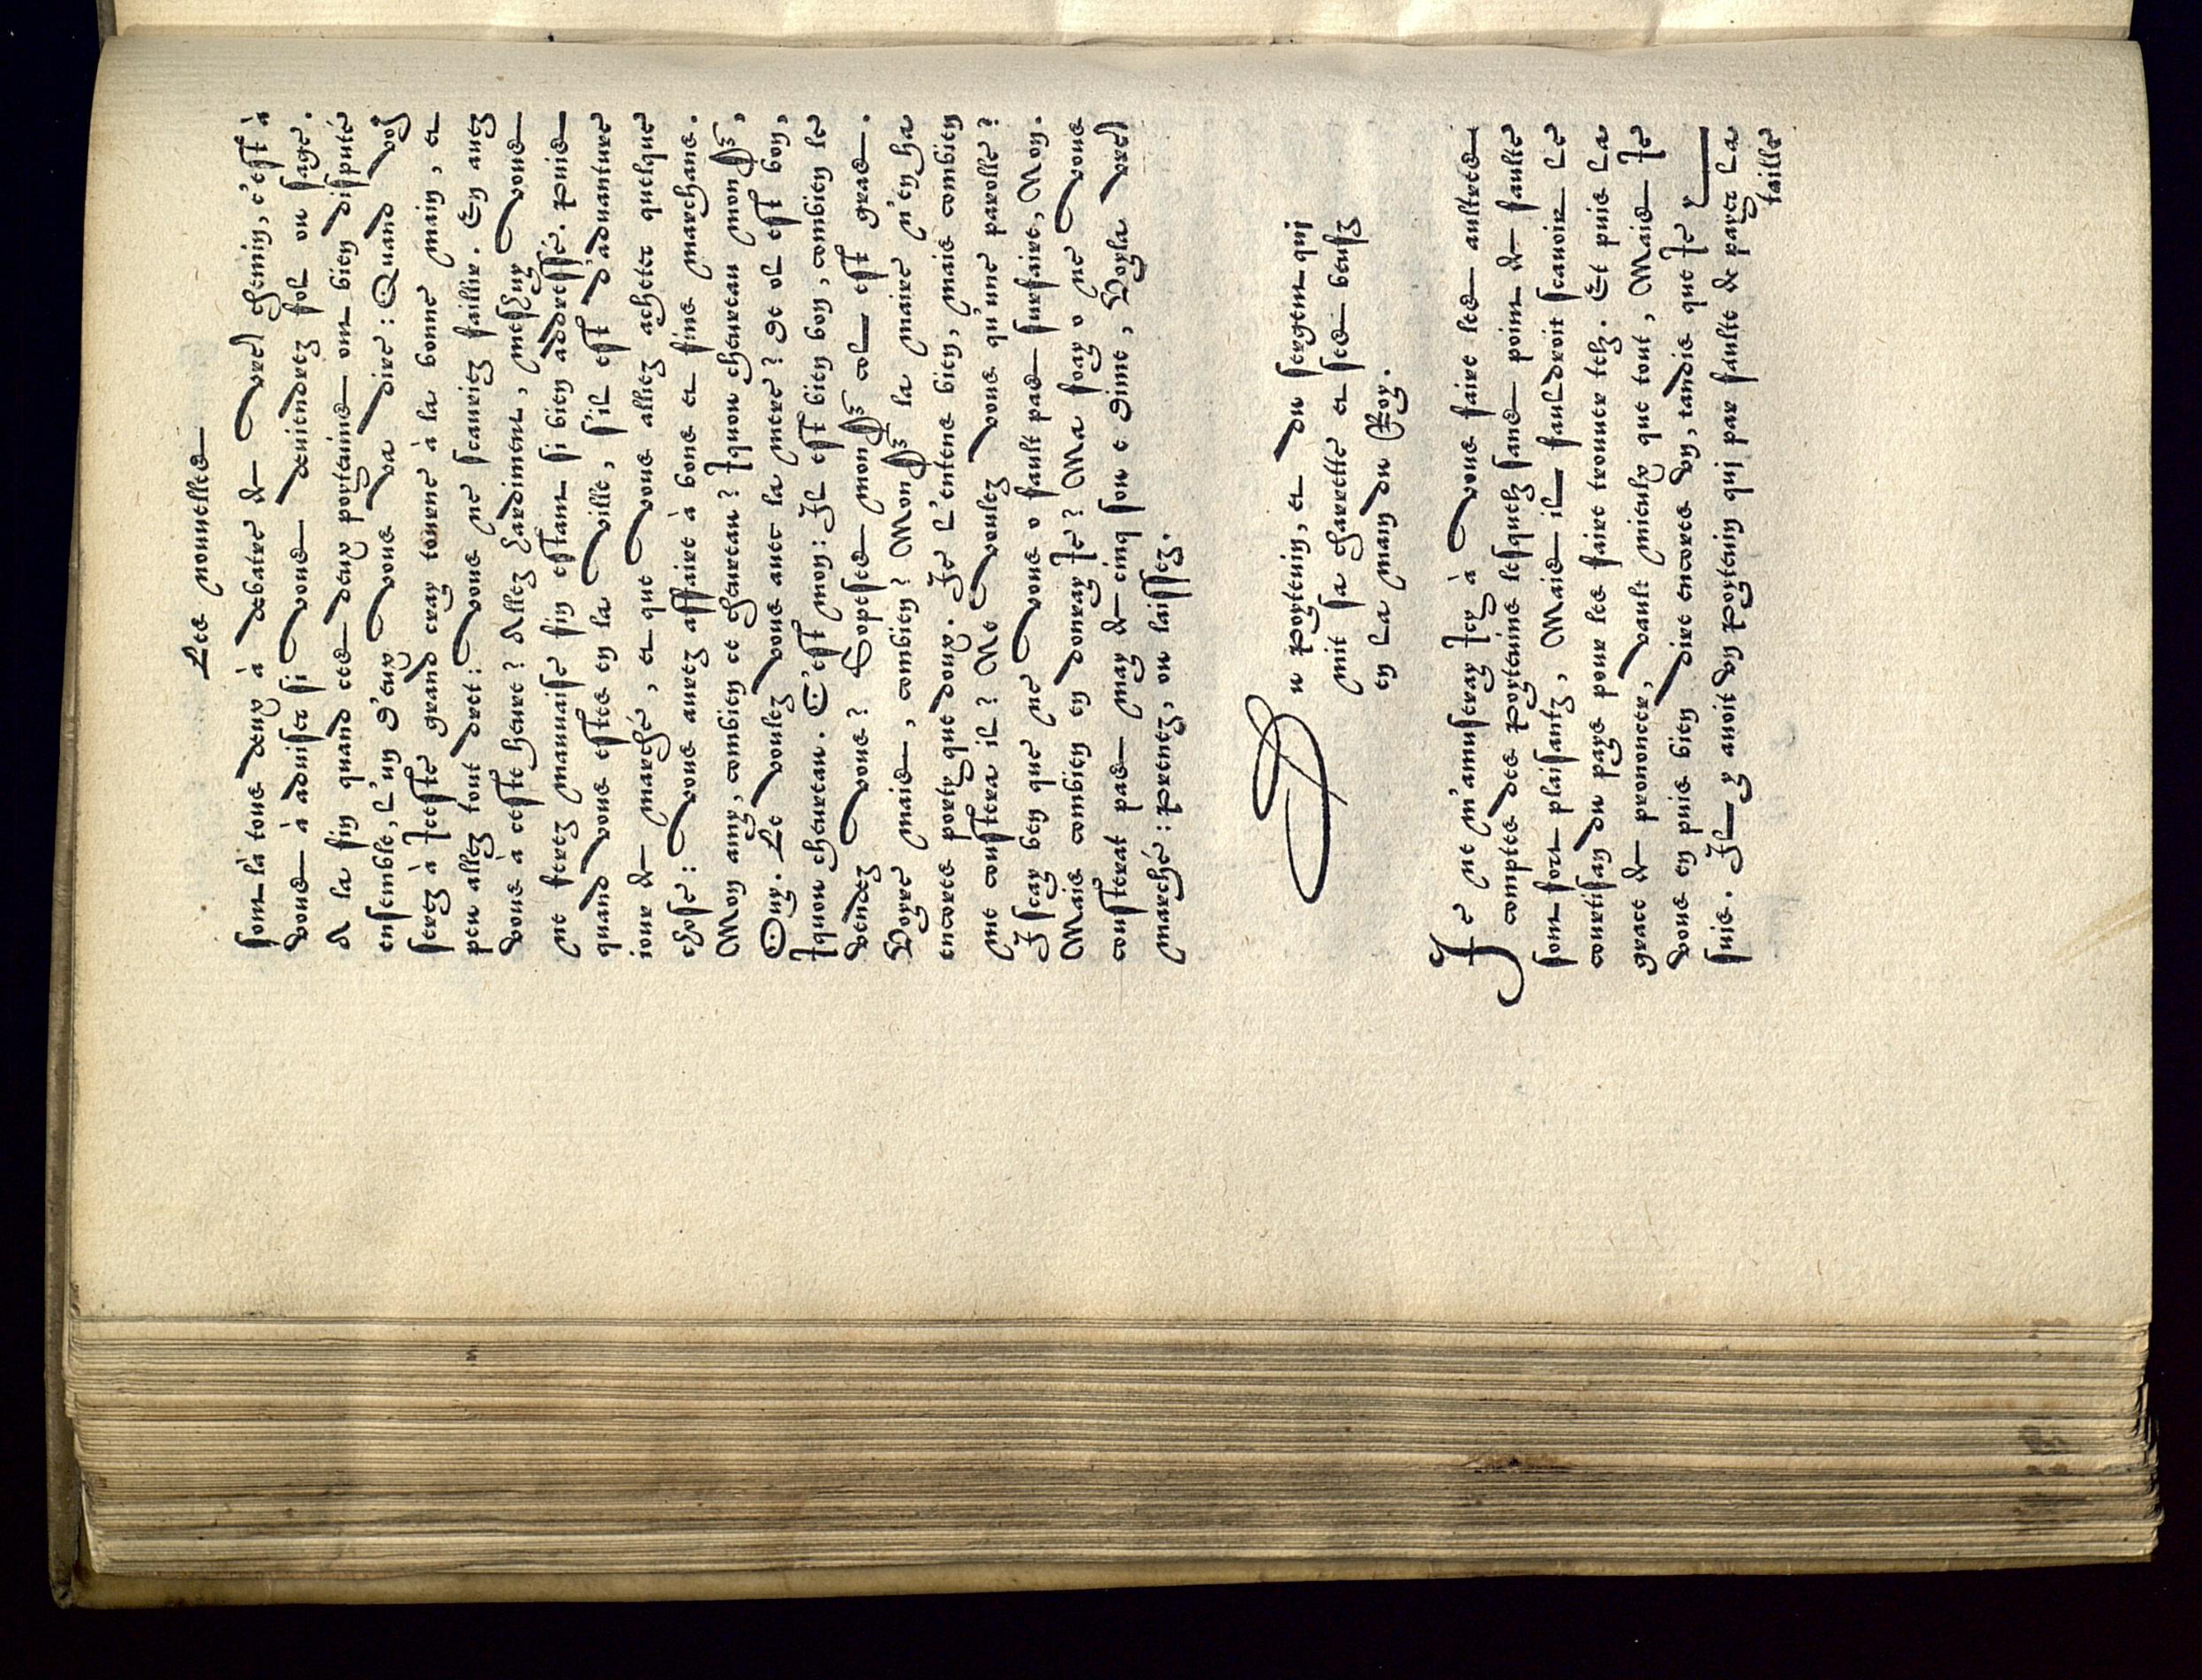 Les nouuelles
sont là tous deux à debatre de vostre chemin, c'est à
vous à aduiser si vous deuiendrez fol ou sage.
A la fin quand ces deux poyteuins ont bien disputé
ensemble, l'un d'eux vous va dire: Quand vous
serez à ceste grand cray tourné à la bonne main, et
peu allez tout dret: vous ne scauriez faillir. En auez
vous à ceste heure? Allez hardiment, meshuy vous
ne ferez mauuaise fin estant si bien addressé. Puis
quand vous estes en la ville, s'il est d'aduanture
iour de marché, et que vous alliez achetter quelque
chose: vous aurez affaire à bons et fins marchans.
Mon amy, combien ce cheureau? Iquou cheureau monsr,
Ouy. Le voulez vous auec la mere? Ol est bon,
Iquou cheureau. C'est mon: Il est bien bon, combien le
vendez vous? Sopesés monsr col est gras.
Voyre mais, combien? Monsr la maire n'en ha
encores porty que doux. Ie l'entens bien, mais combien
me coustera il? Ne voulez vous qu'une parolle?
I scay ben que ne vous o fault pas surfaire, Non.
Mais combien en donray Ie? Ma foay o ne vous
cousterat pas may de cinq sou e dimé, Voyla vostre
marché: Prenez, ou laissez.
Du Poyteuin, et du sergent qui
mit sa charrette et ses beufz
en la main du Roy.
Ie ne m'amuseray Icy à vous faire les aultres
comptes des Poyteuins lesquelz sans point de faulte
sont fort plaisantz, Mais il fauldroit scauoir le
courtisan du pays pour les faire trouuer telz. Et puis la
grace de prononcer, vault mieulx que tout, Mais Ie
vous en puis bien dire encores un, tandis que Ie y
suis. Il y auoit un Poyteuin qui par faulte de payer la
taille